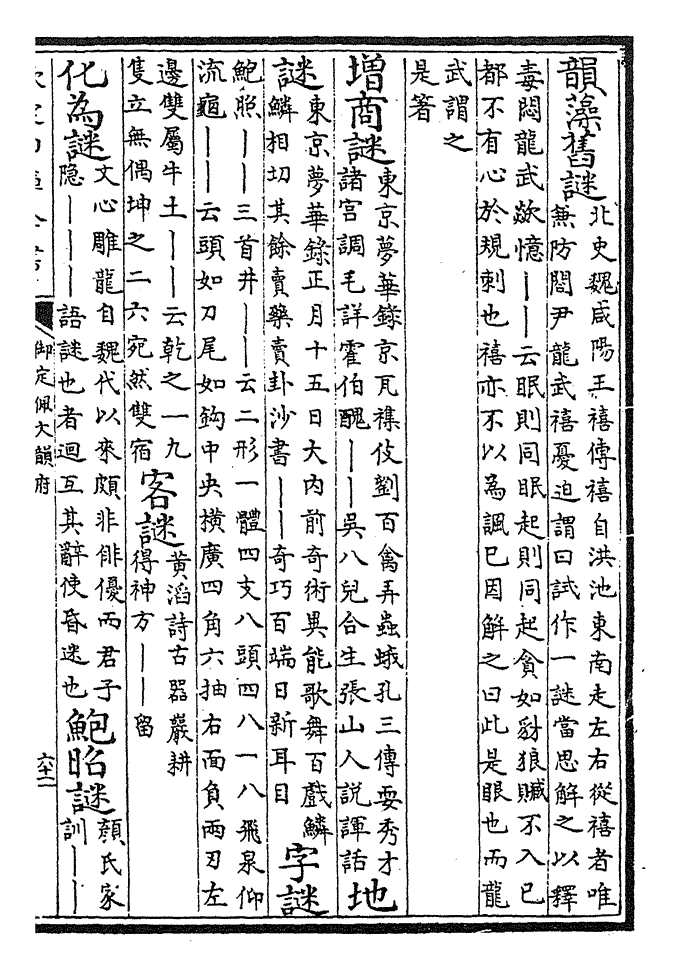 韻藻舊謎
北史魏咸陽王禧傳禧自洪池東南走左右從禧者唯
無防閤尹龍武禧憂迫謂曰試作一謎當思解之以釋
毒悶龍武欻憶——云眠則同眠起則同起貪如豺狼贓不入已
都不有心於規刺也禧亦不以為諷巳因解之曰此是眼也而龍
武謂之
是箸
増商謎
東京夢華錄京瓦襍伎劉百禽弄蟲蛾孔三傳耍秀才
諸宫調毛詳霍伯醜——吳八兒合生張山人説諢話
地謎
東京夢華錄正月十五日大内前奇術異能歌舞百戲鱗
鱗相切其餘賣藥賣卦沙書——奇巧百端日新耳目
字謎
鮑照——三首井——云二形一體四支八頭四八一八飛泉仰
流龜——云頭如刀尾如鈎中央横廣四角六抽右面負兩刃左
邊雙屬牛土——云乾之一九
隻立無偶坤之二六宛然雙宿
客謎
黄滔詩古器巖耕
得神方——留
化為謎
文心雕龍自魏代以來頗非俳優而君子
隐———語謎也者迴互其辭使昏迷也
鮑昭謎
顔氏家
訓——
御定佩文韻府
六十二